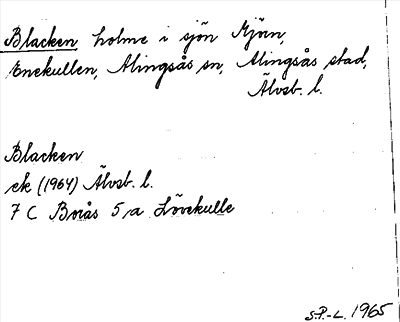 Blacken holme i sjön Mjörn,
Enekullen, Alingsås sn, Alingsås stad,
Älvsb. l.
Blacken
ek (1964) Älvsb. l.
7 C Borås 5 a Lövekulle
S.P.-L. 1965